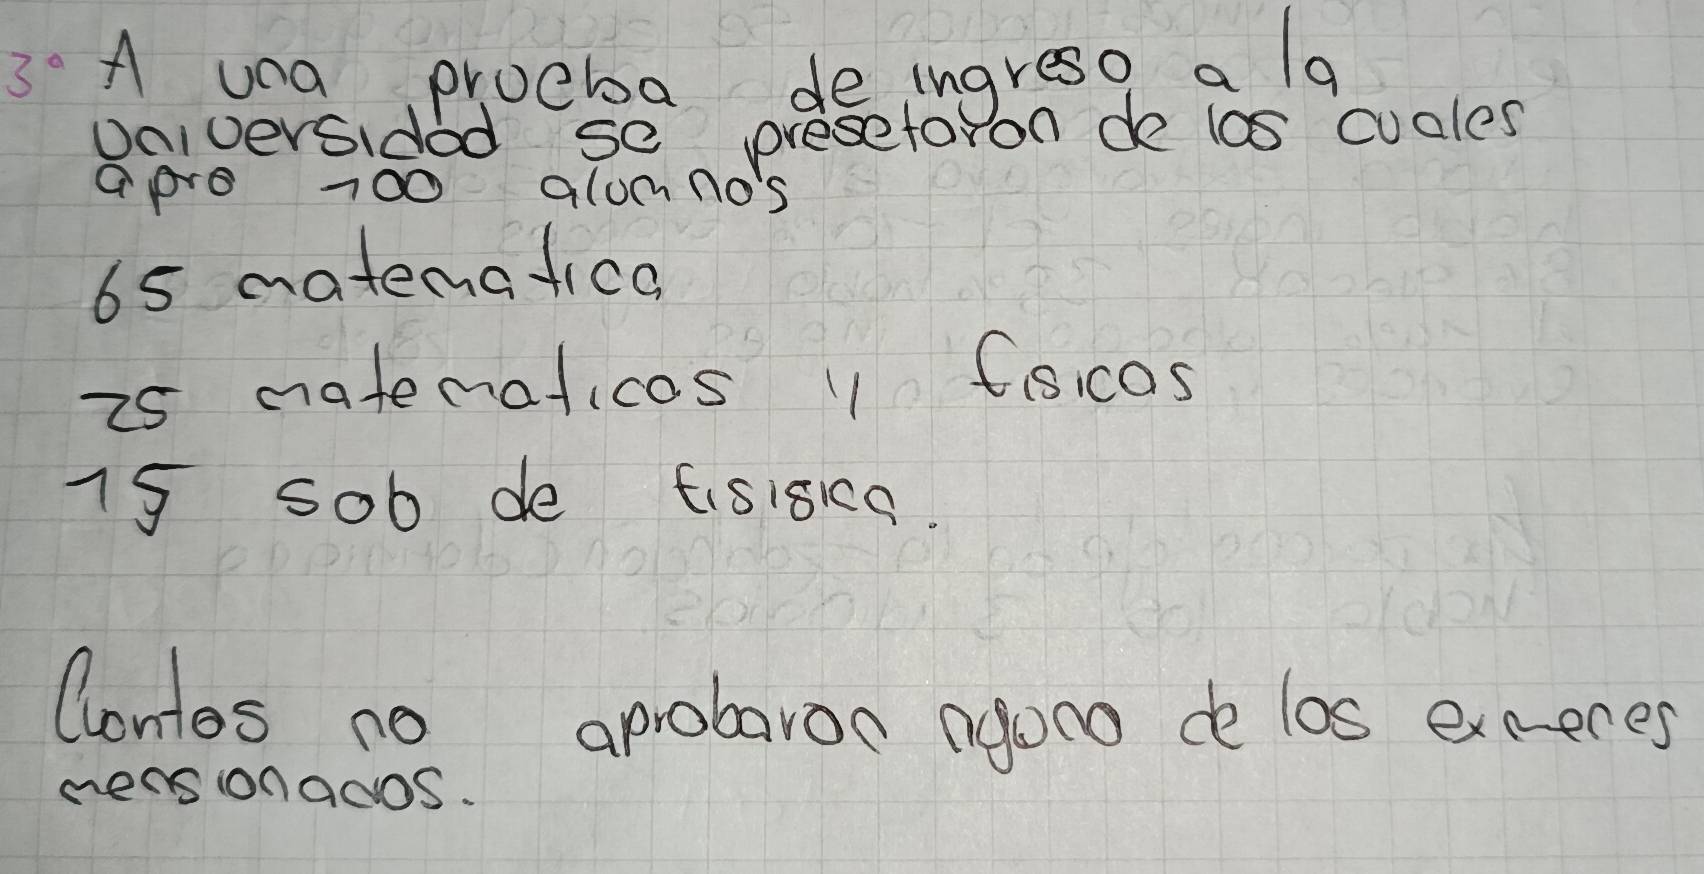 3° A una prueba de ingreso a la
universidad se presetaron de los cuales
apro 100 alumnos
65 matematica
25 matematicas y fisicas
15 sob de fisisica.
Cuantos no aprobaron nguno de los exmenes
mensionados.